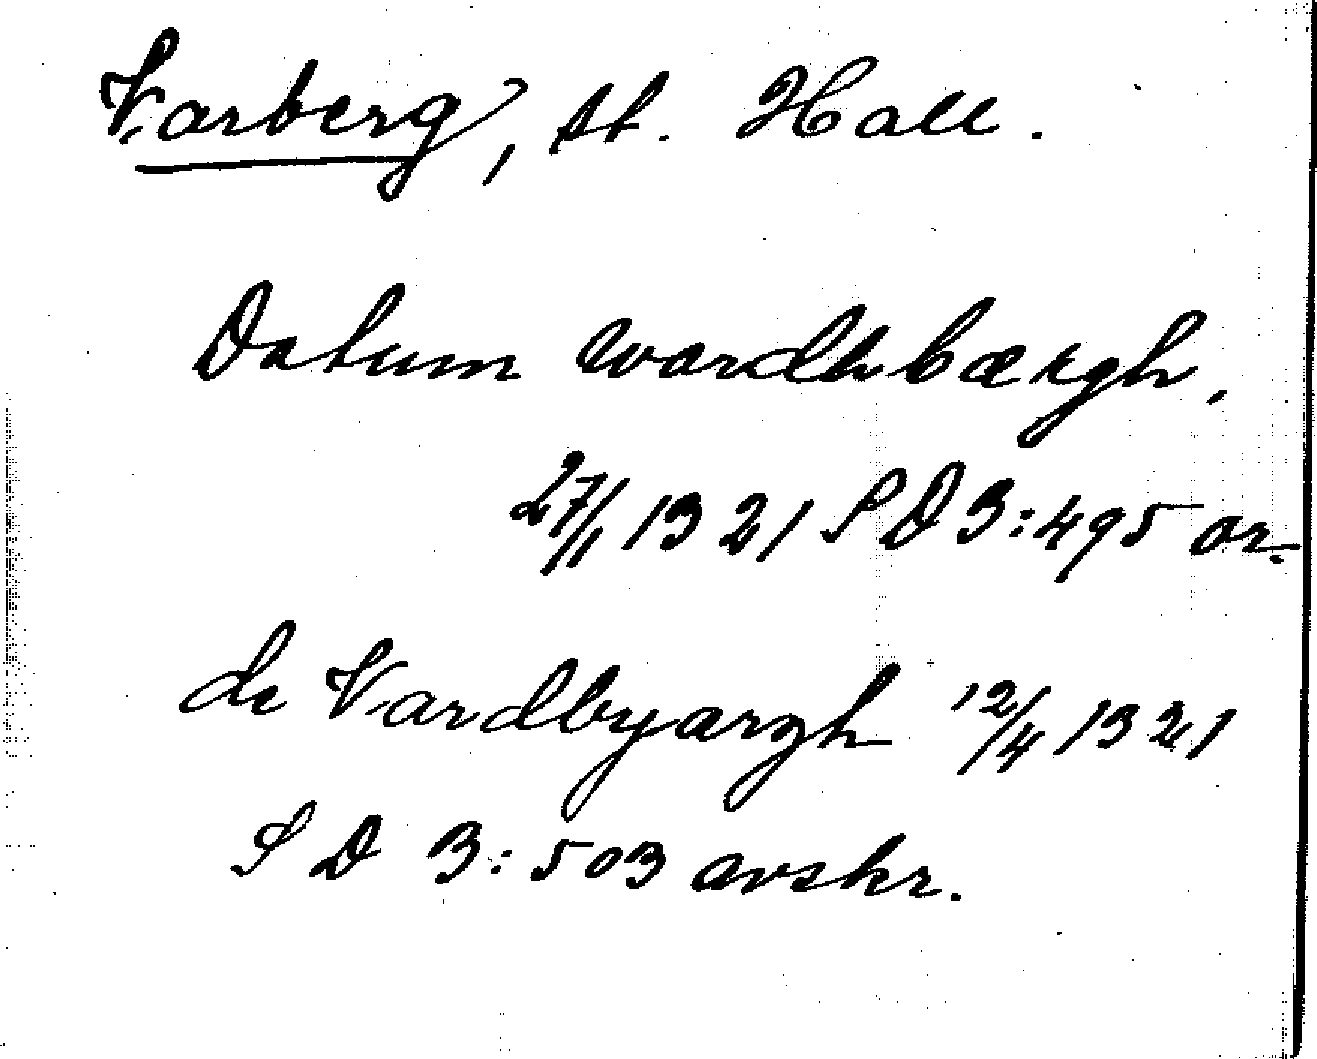 Varberg, st. Hall.
Datum wardhbærgh,
27/1 1321 SD 3:495 or.
de Vardbyargh 12/4 1321
SD 3:503 avskr.